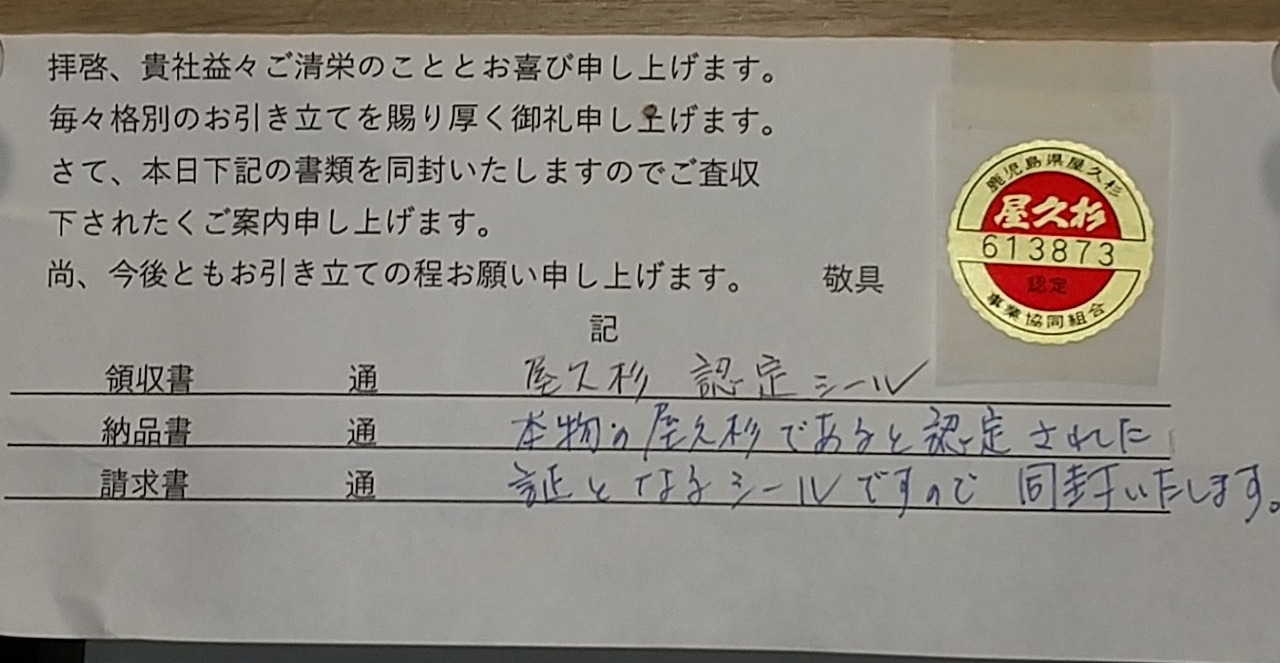 拝啓、貴社益々ご清栄のこととお喜び申し上げます。
毎々格別のお引き立てを賜り厚く御礼申し上げます。
さて、本日下記の書類を同封いたしますのでご査収
下されたくご案内申し上げます。
尚、今後ともお引き立ての程お願い申し上げます。 敬具
鹿児島県屋久杉
屋久杉
613873
認定
事業協同組合
記
領収書 通 屋久杉 認定シール
納品書 通 本物の屋久杉であると認定された
請求書 通 証となるシールですので 同封いたします。